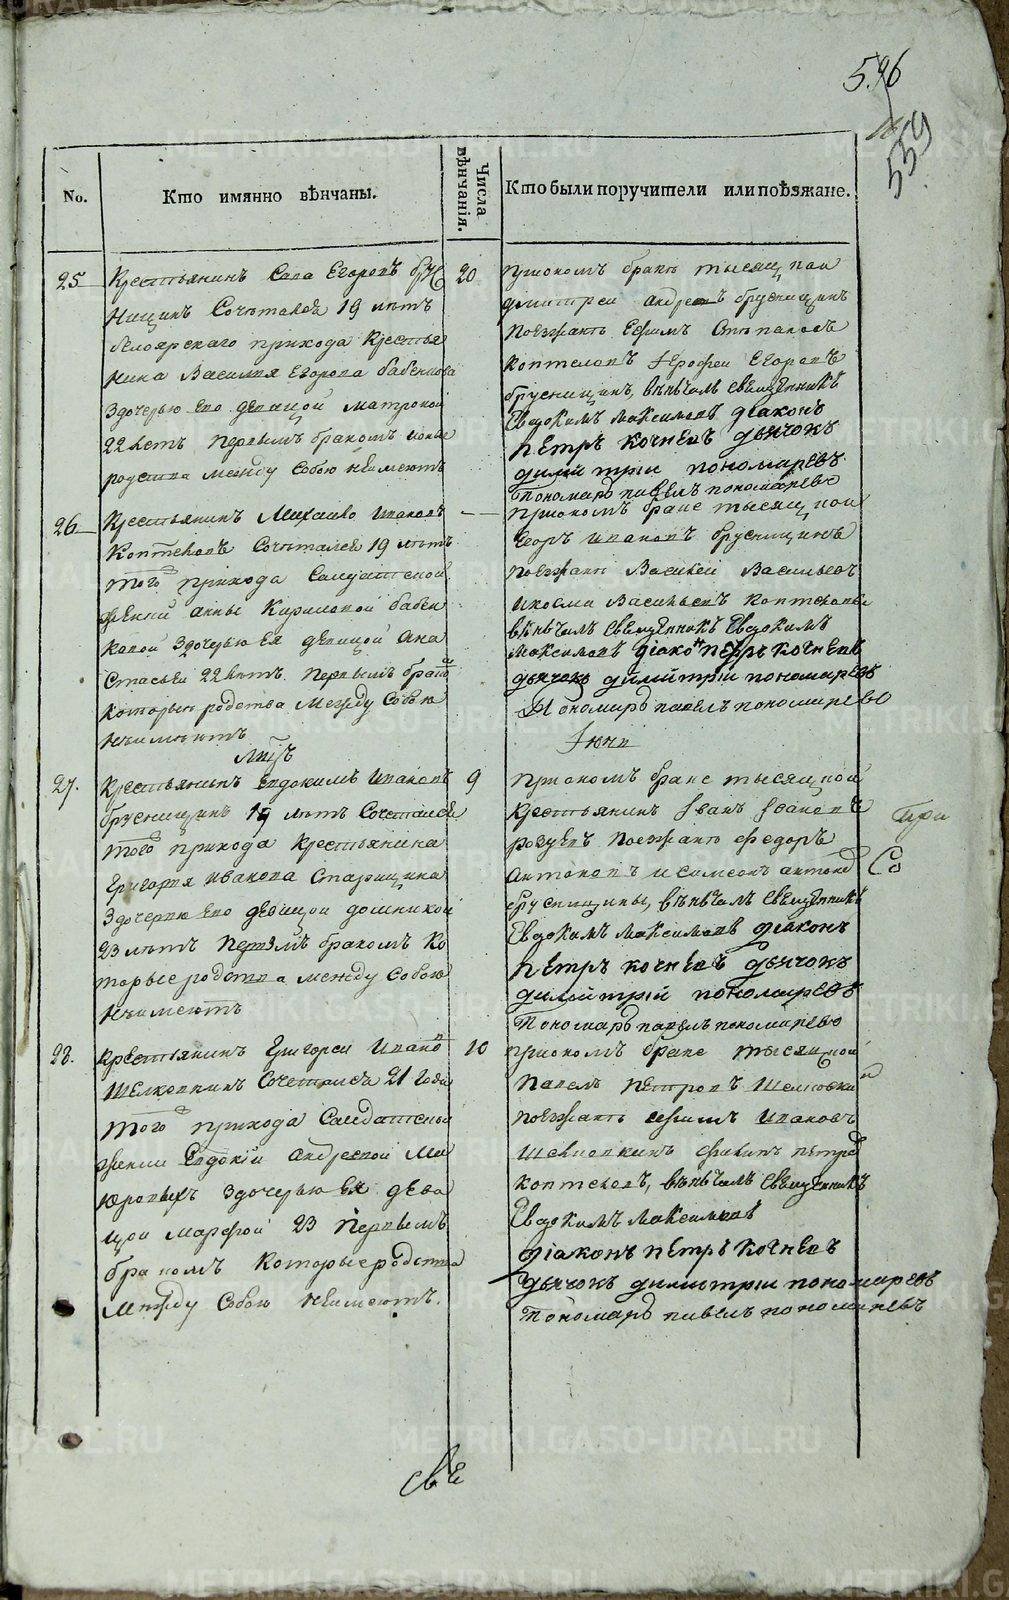 596
559
No.
Кто имянно вѣнчаны.
Числа вѣнчанія.
Кто были поручители или поѣзжане.
25
Крестьянинъ Сава Егоровъ Брус
ницинъ Сочетался 19 лѣтъ
белоярскаго прихода Крестья
нина Василия Егорова бабенкова
Здочерью ево девицой матроной
22 летъ первымъ бракомъ
родства между Собою неимеютъ
20
Тысяцкои
димитреи Андреевъ брусницинъ
Поезжанѣ Ефимъ Степановъ
Коптеловъ Ерофеи Егоровъ
брусницинъ, вѣнчалъ Священникъ
Евдокимъ Максимовъ діаконъ
петръ кочневъ дьячокъ
димитрій пономаревъ
Пономарь павелъ пономаревъ
26
Крестьянинъ Михаило Ивановъ
Коптеловъ Сочетался 19 лѣтъ
того прихода Салдатской
женки анны Кириловой бабен
ковой Здочерью Ея девицой Ана
стасьеи 22 летъ первымъ брако
которыи родства между Собою
неимѣютъ
приономъ браке тысяцкои
Егоръ Ивановъ брусницинъ
поезжанѣ Василеи Васильевъ
Икосма Васильевъ Коптеловы
вѣнчалъ Священникъ Евдокимъ
Максимовъ діаконъ петръ кочневъ
дьячокъ димитрій пономаревъ
Пономарь павелъ пономаревъ
27.
Крестьянинъ Евдокимъ Ивановъ
брусницинъ 19 лѣтъ Сочетался
того прихода Крестьянина
Григория Иванова Старицина
Здочерию ево девицои домникой
23 лѣтъ первымъ бракомъ Ко
торые родства между Собою
неимеютъ
9
приономъ браке тысяцкой
Крестьянинъ Іванъ Івановъ
поезжанѣ федоръ
антоновъ исимеонъ антоно
брусницины, вѣнчалъ Священникъ
Евдокимъ Максимовъ діаконъ
петръ кочневъ дьячокъ
димитрій пономаревъ
Пономарь павелъ пономаревъ
При
Со
28.
Крестьянинъ Григореи Ивановъ
Шелкопкинъ Сочетался 21 года
того прихода Салдатской
женки Евдокіи андреевой Ма
юровыхъ Здочерью Ея деви
цои марфой 23 первымъ
бракомъ Которые родства
между Собою неимеютъ.
10
приономъ браке тысяцкой
Павелъ Петровъ
поезжанѣ ефимъ Ивановъ
филипъ петров
коптеловъ, вѣнчалъ Священникъ
Евдокимъ Максимовъ
діаконъ петръ кочневъ
дьячокъ димитрій пономаревъ
Пономарь павелъ пономаревъ
METRIKI.GASO-URAL.RU